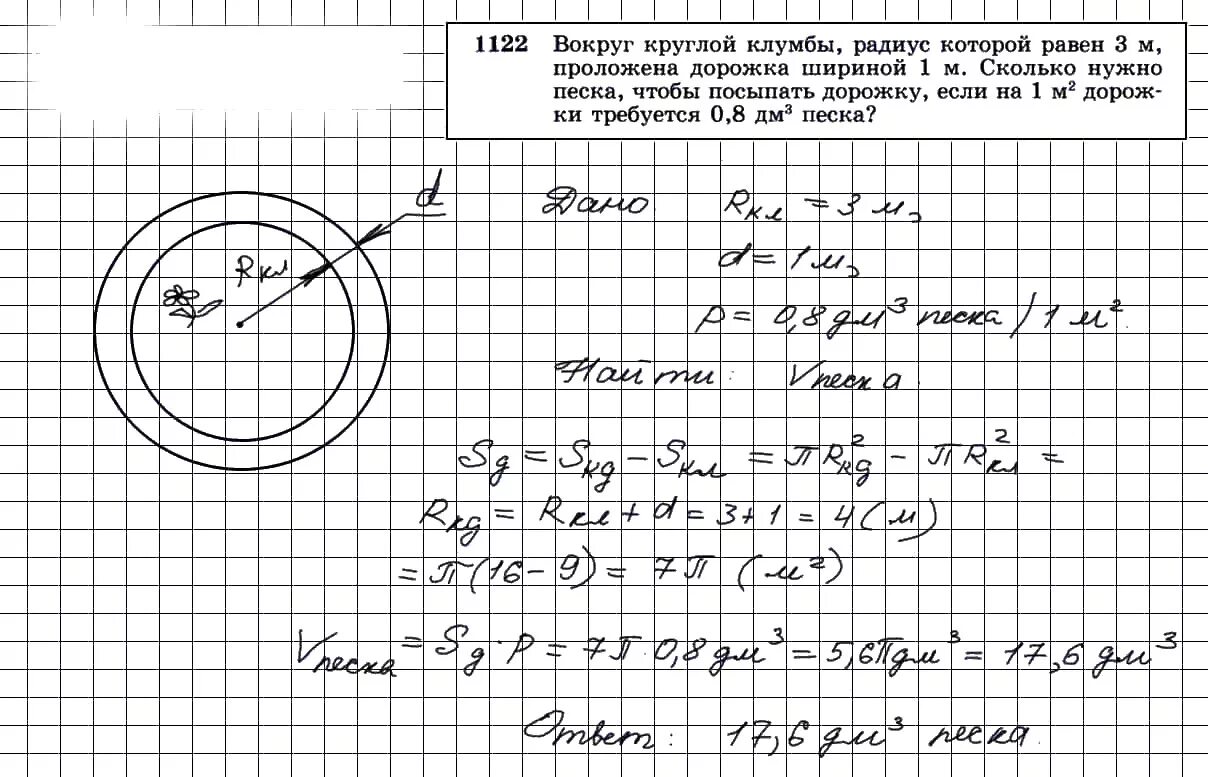 1122 Вокруг круглой клумбы, радиус которой равен 3 м,
проложена дорожка шириной 1 м. Сколько нужно
песка, чтобы посыпать дорожку, если на 1 м² дорож-
ки требуется 0,8 дм³ песка?
d
Rкл
Дано. Rкл = 3 м,
d = 1 м,
p = 0,8 дм³ песка / 1 м².
Найти: Vпеска.
Sд = Sкд – Sкл = πR²кд – πR²кл =
Rкд = Rкл + d = 3 + 1 = 4 (м)
= π(16 – 9) = 7π (м²)
Vпеска = Sд · p = 7π · 0,8 дм³ = 5,6π дм³ = 17,6 дм³
Ответ: 17,6 дм³ песка.